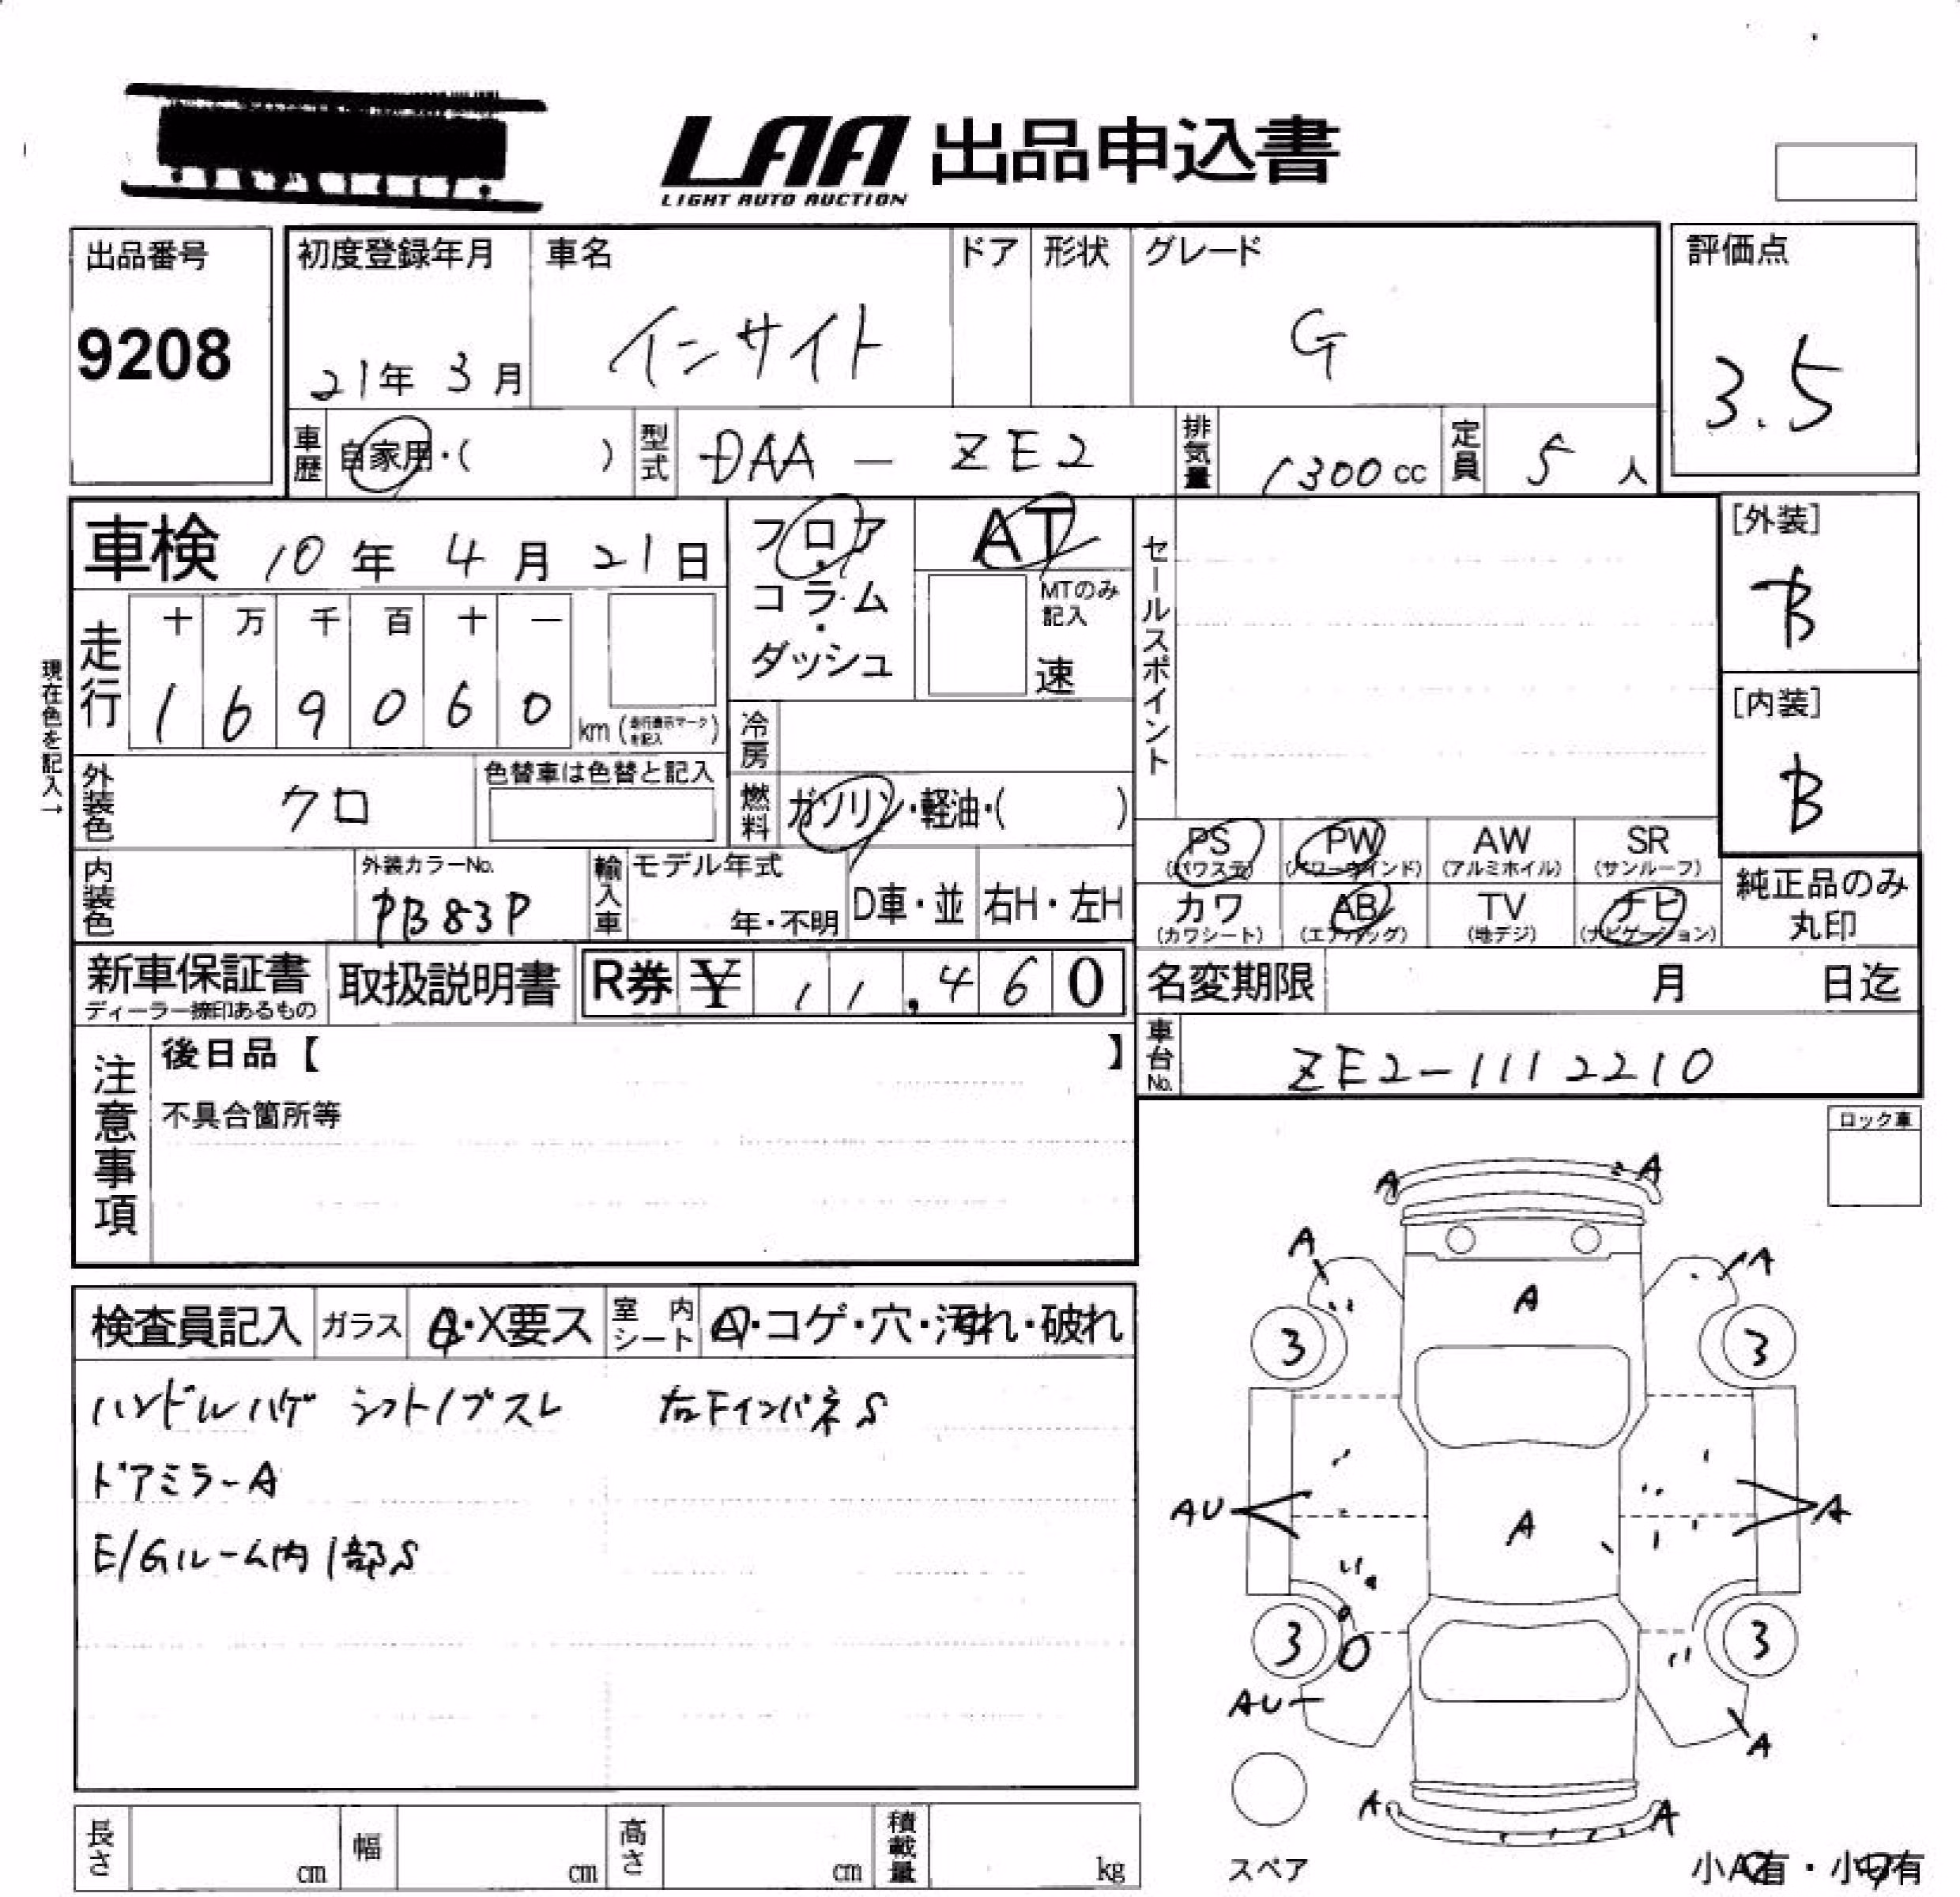 LAA 出品申込書
LIGHT AUTO AUCTION
出品番号
9208
初度登録年月
21年 3月
車名
インサイト
ドア
形状
グレード
G
評価点
3.5
車歴
自家用・( )
型式
DAA - ZE2
排気量
1300cc
定員
5人
車検 10年 4月 21日
フロア・コラム・ダッシュ
AT
MTのみ記入
速
セールスポイント
[外装]
B
[内装]
B
現在色を記入→
走行
十 万 千 百 十 一
1 6 9 0 6 0
km (走行表示マークを記入)
冷房
燃料
ガソリン・軽油・( )
外装色
クロ
色替車は色替と記入
内装色
外装カラーNo.
PB83P
輸入車
モデル年式
年・不明
D車・並
右H・左H
PS (パワステ)
PW (パワーウインド)
AW (アルミホイル)
SR (サンルーフ)
カワ (カワシート)
AB (エアバッグ)
TV (地デジ)
ナビ (ナビゲーション)
純正品のみ丸印
新車保証書
ディーラー捺印あるもの
取扱説明書
R券 ¥ 11,460
名変期限 月 日迄
車台No.
ZE2-1112210
注意事項
後日品【 】
不具合箇所等
ロック車
検査員記入
ガラス
・X要ス
室内シート
・コゲ・穴・汚れ・破れ
ハンドルハゲ シフトノブスレ 右FインパネS
ドアミラーA
E/Gルーム内1部S
A A
A A
A
3 3
AU A A
3 3
AU A
A A
スペア
小A有・小 有
長さ cm
幅 cm
高さ cm
積載量 kg